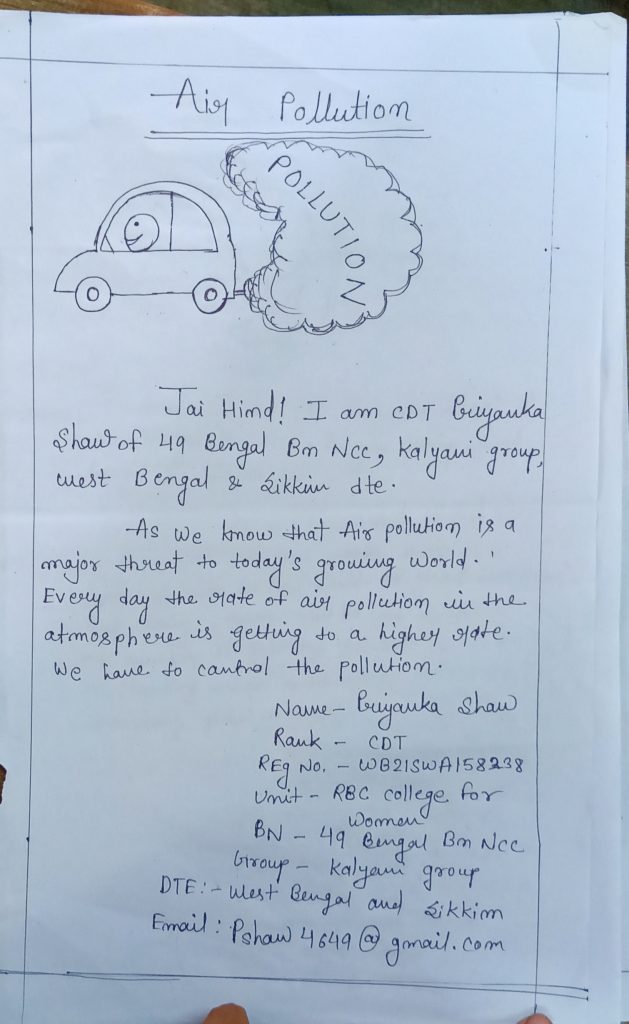 Air Pollution
POLLUTION
Jai Hind! I am CDT Priyanka
Shaw of 49 Bengal Bn Ncc, Kalyani group,
west Bengal & Sikkim dte.
As we know that Air pollution is a
major threat to today's growing world.
Every day the rate of air pollution in the
atmosphere is getting to a higher rate.
We have to control the pollution.
Name - Priyanka Shaw
Rank - CDT
REg No. - WB21SWA158238
Unit - RBC college for
Women
BN - 49 Bengal Bn Ncc
Group - Kalyani group
DTE:- West Bengal and Sikkim
Email : Pshaw4649@gmail.com